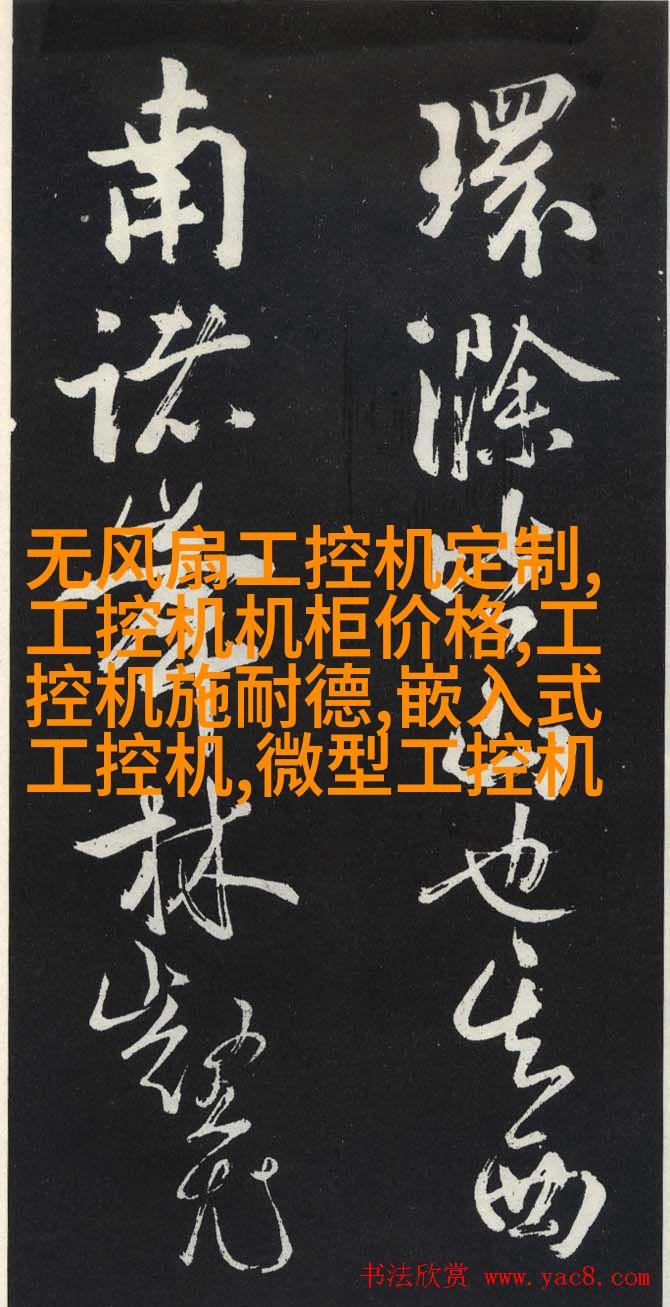 環滁皆山也其西
南諸峯林壑尤
无风扇工控机定制,
工控机机柜价格,工
控机施耐德,嵌入式
工控机,微型工控机
书法欣赏 www.yac8.com